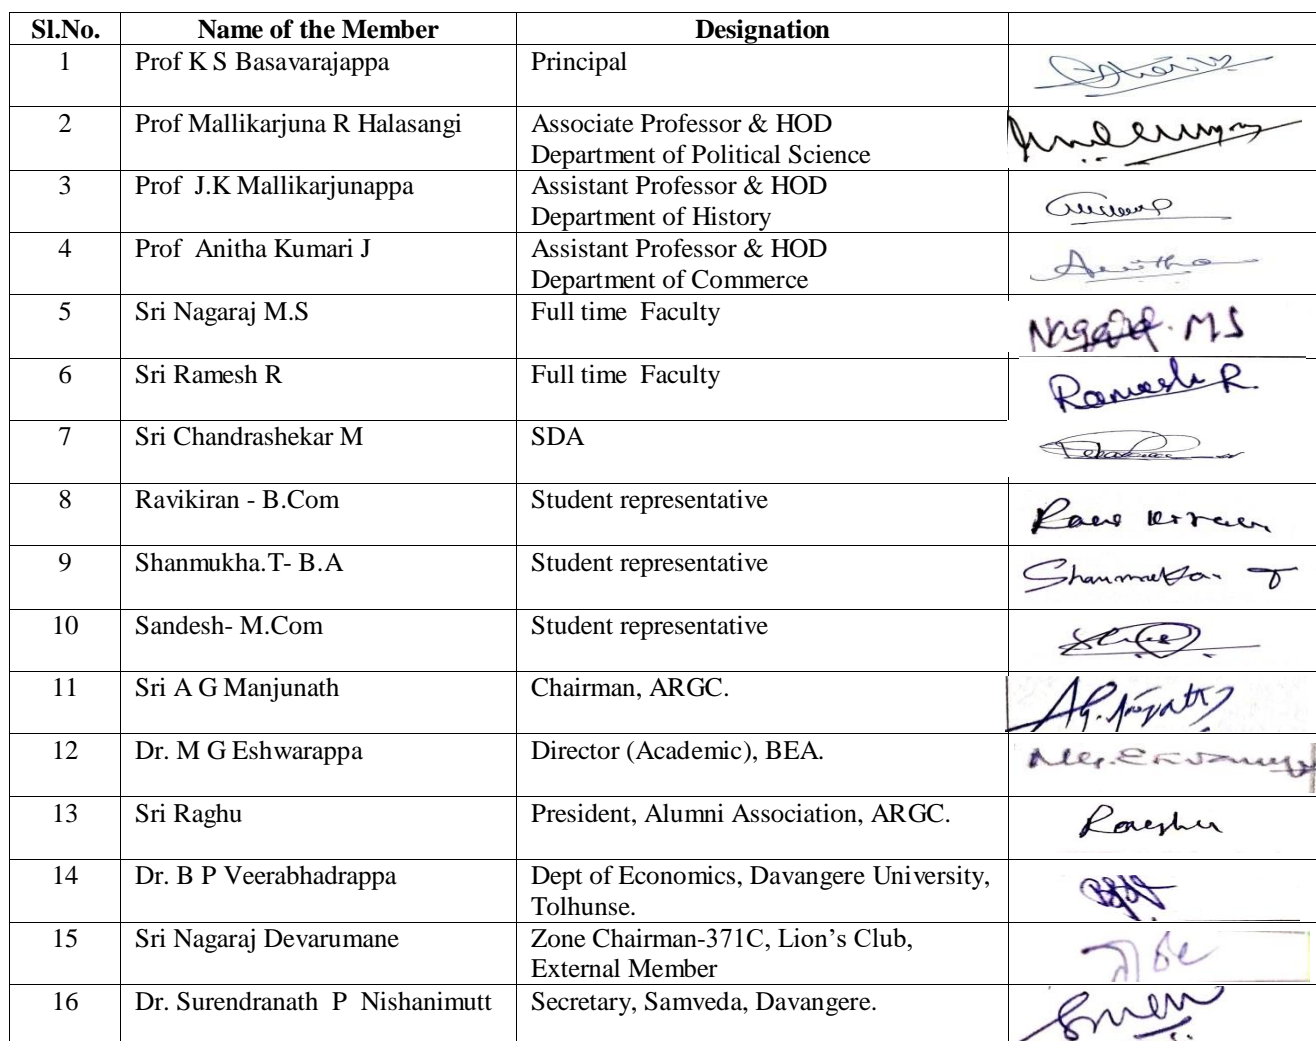 Sl.No. Name of the Member Designation
1 Prof K S Basavarajappa Principal
2 Prof Mallikarjuna R Halasangi Associate Professor & HOD
Department of Political Science
3 Prof J.K Mallikarjunappa Assistant Professor & HOD
Department of History
4 Prof Anitha Kumari J Assistant Professor & HOD
Department of Commerce Anitha
5 Sri Nagaraj M.S Full time Faculty Nagaraj. MS
6 Sri Ramesh R Full time Faculty Ramesh R.
7 Sri Chandrashekar M SDA
8 Ravikiran - B.Com Student representative
9 Shanmukha.T- B.A Student representative Shanmukha. T
10 Sandesh- M.Com Student representative
11 Sri A G Manjunath Chairman, ARGC.
12 Dr. M G Eshwarappa Director (Academic), BEA.
13 Sri Raghu President, Alumni Association, ARGC.
14 Dr. B P Veerabhadrappa Dept of Economics, Davangere University,
Tolhunse.
15 Sri Nagaraj Devarumane Zone Chairman-371C, Lion’s Club,
External Member
16 Dr. Surendranath P Nishanimutt Secretary, Samveda, Davangere.